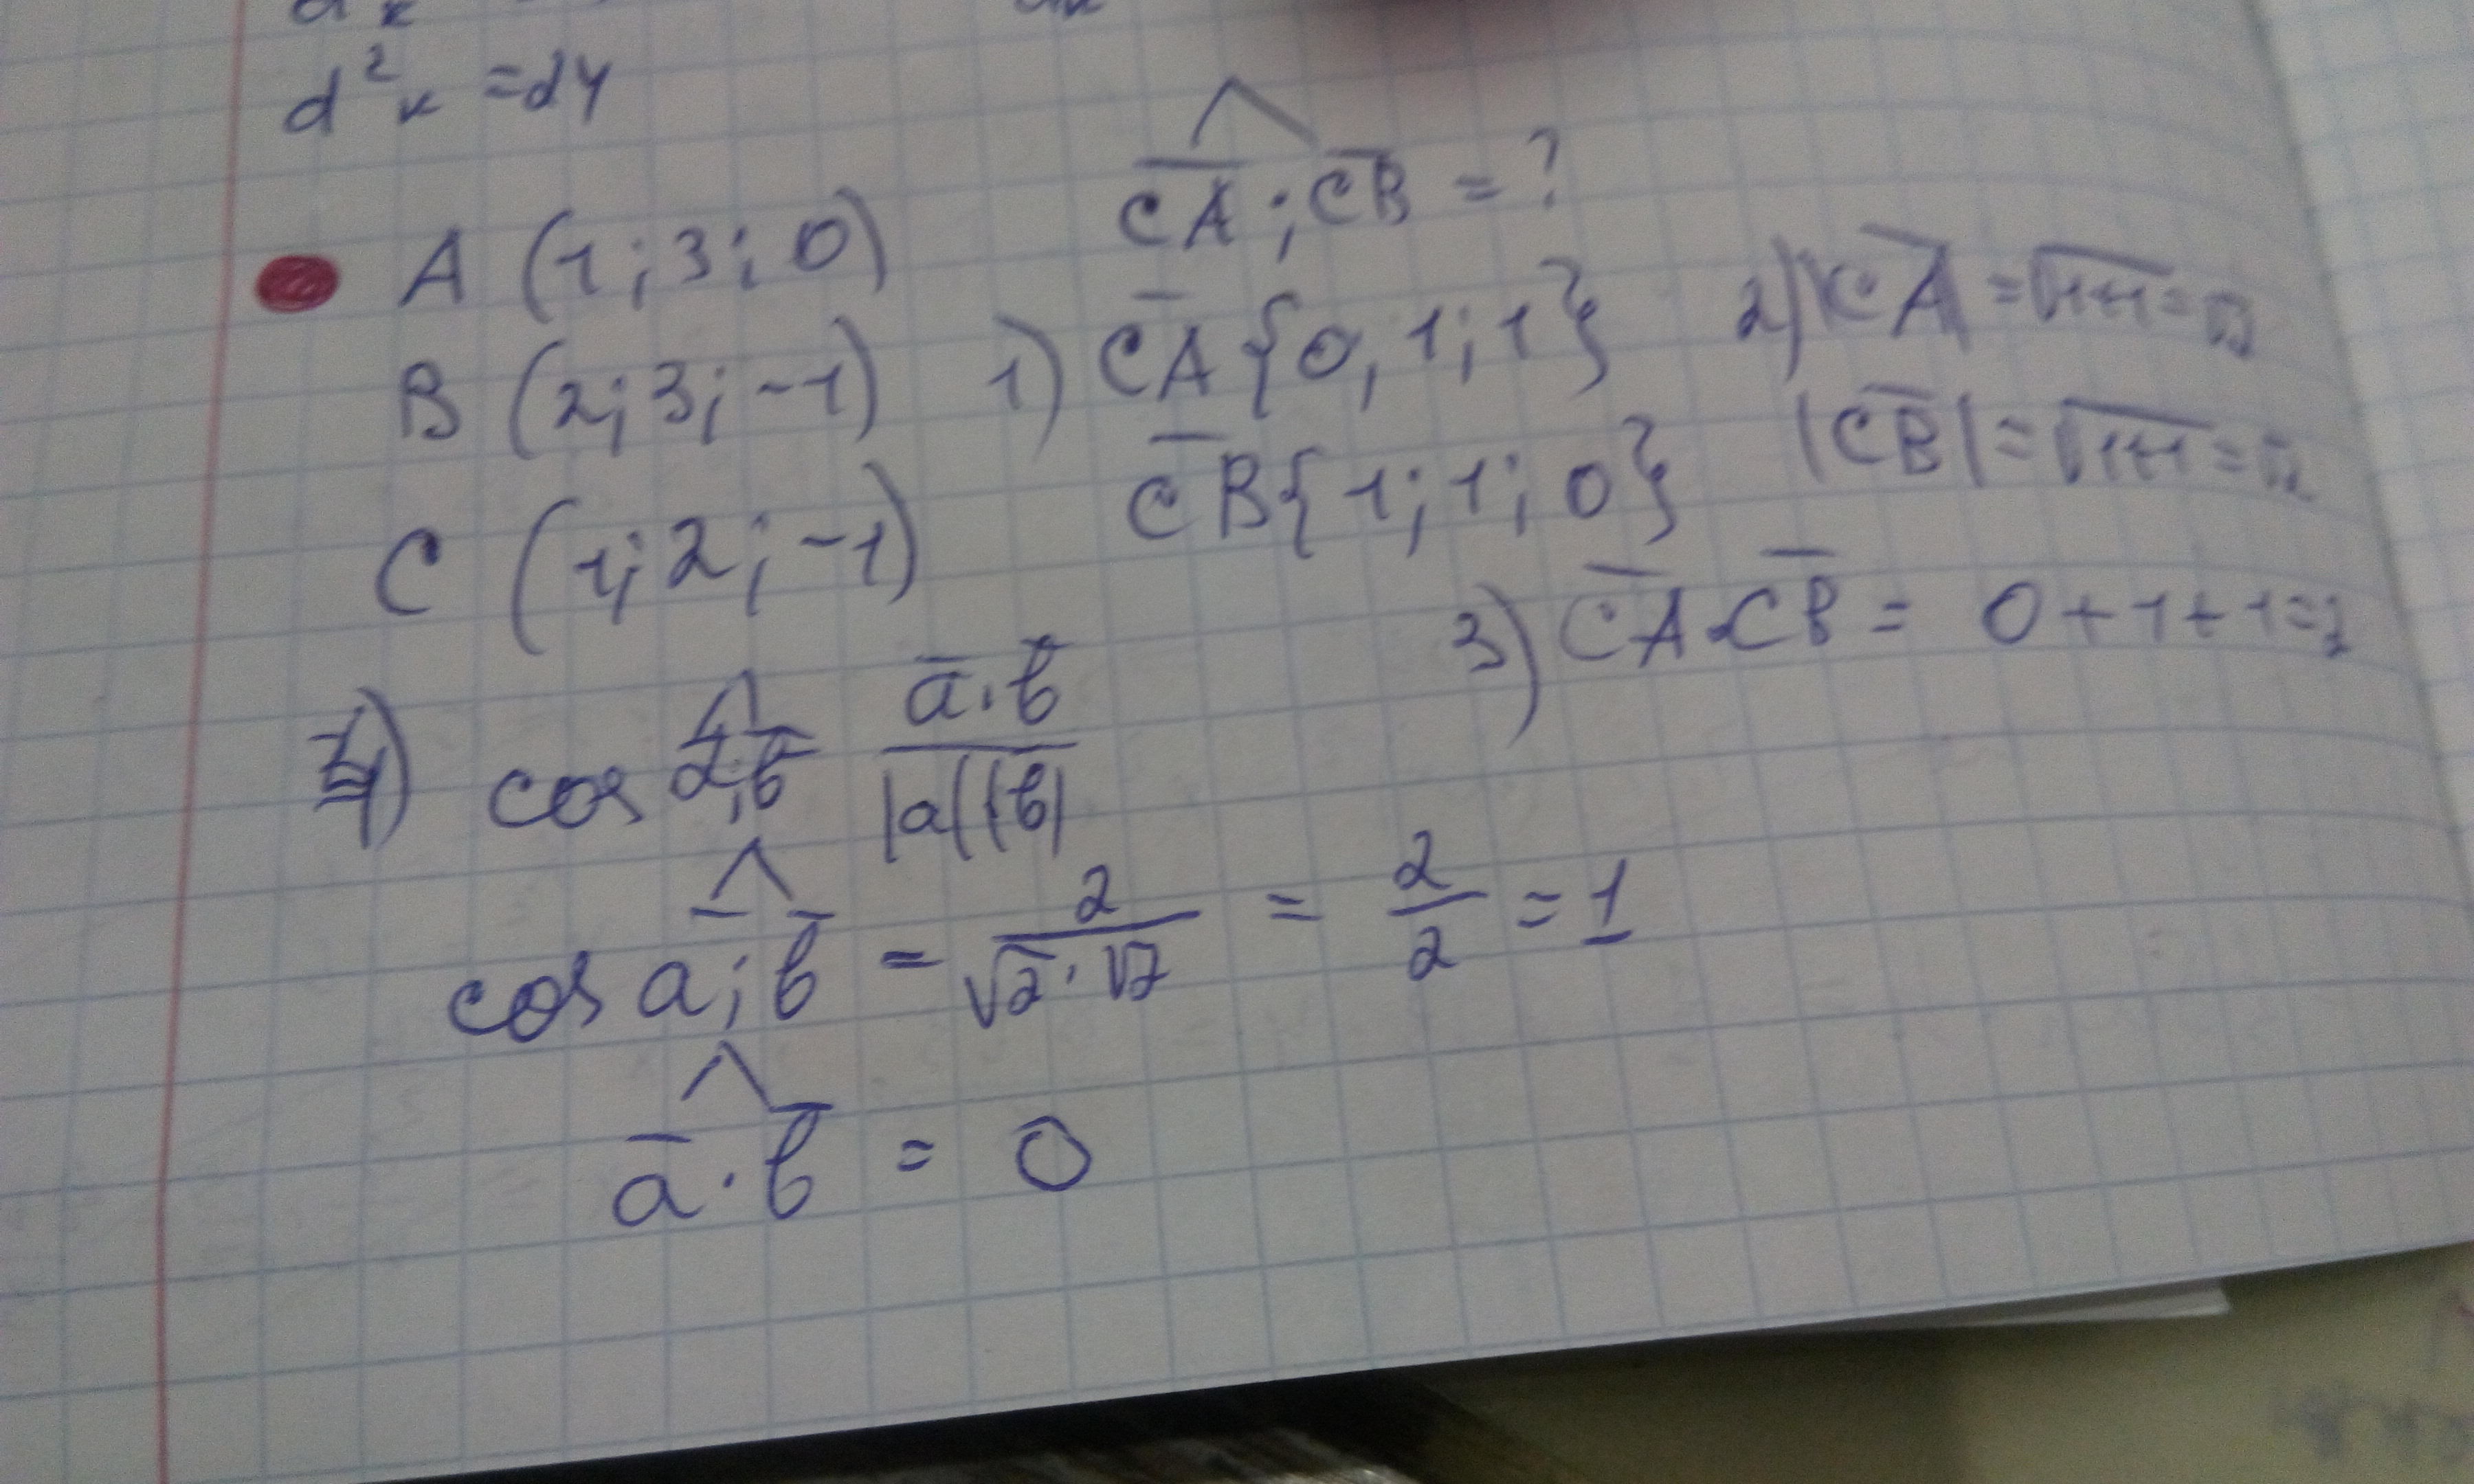 d²x = dy
A (1; 3; 0)
B (2; 3; -1)
C (1; 2; -1)
CA; CB = ?
1) CA {0, 1; 1}
CB {1; 1; 0}
2) |CA| = √1+1 = √2
|CB| = √1+1 = √2
3) CA · CB = 0 + 1 + 1 = 2
4) cos a;b a·b / |a||b|
cos a;b = 2 / √2·√2 = 2/2 = 1
a·b = 0